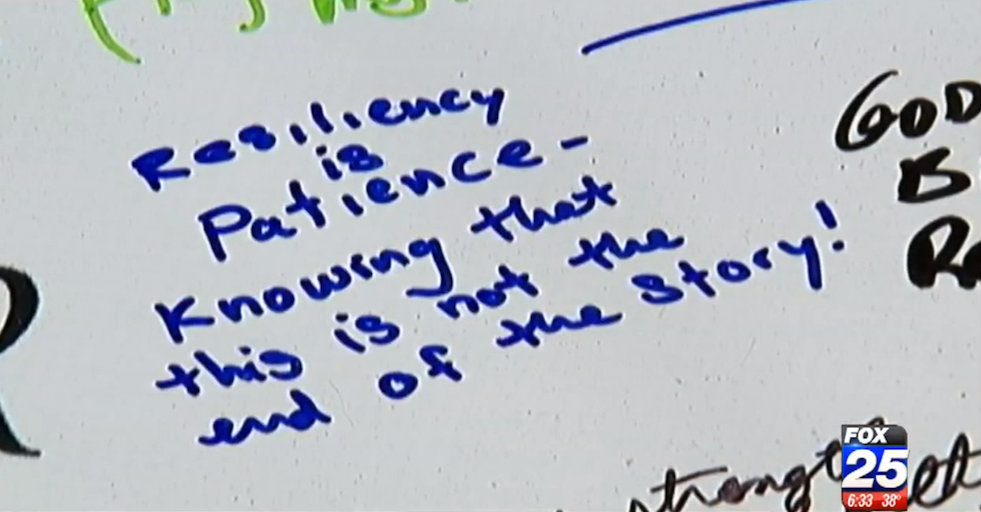 Resiliency
is
Patience -
Knowing that
this is not the
end of the story!
GOD
FOX
25
6:33 38°